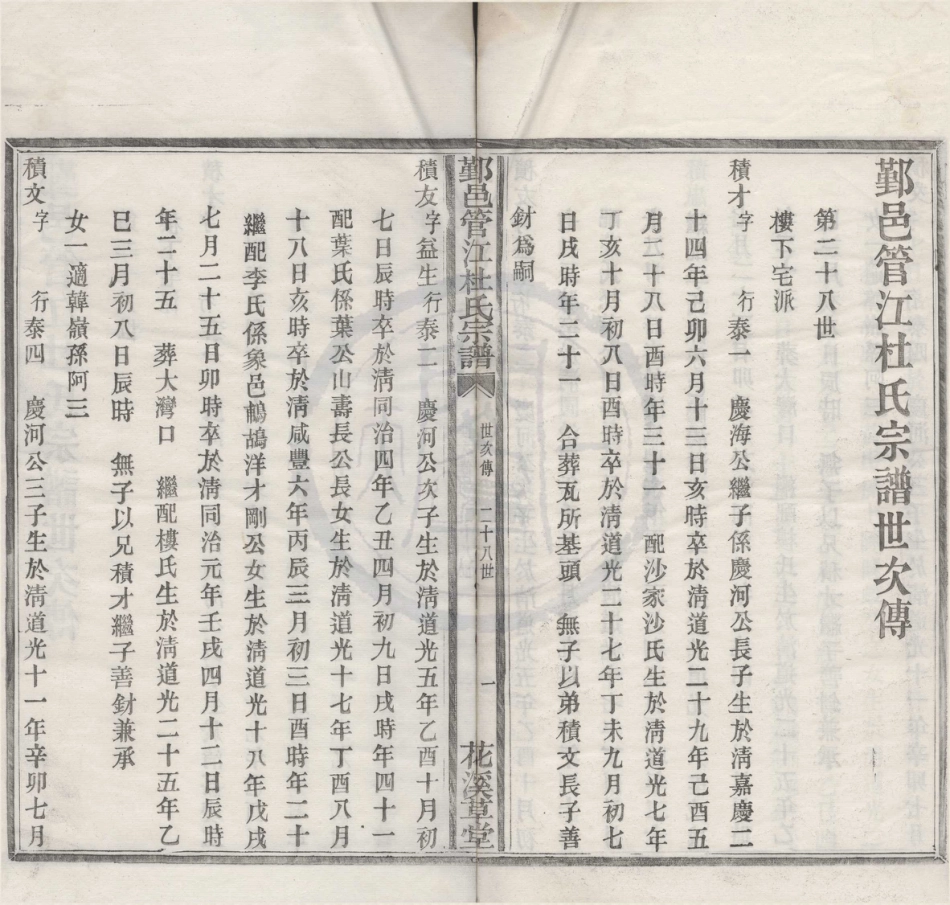 鄞邑管江杜氏宗譜世次傳
第二十八世
樓下宅派
積才字 行泰一 慶海公繼子係慶河公長子生於清嘉慶二
十四年己卯六月十三日亥時卒於清道光二十九年己酉五
月二十八日酉時年三十一 配沙家沙氏生於清道光七年
丁亥十月初八日酉時卒於清道光二十七年丁未九月初七
日戌時年二十一 合葬瓦所基頭 無子以弟積文長子善
財爲嗣
鄞邑管江杜氏宗譜 世次傳 二十八世 一 花溪草堂
積友字益生行泰二 慶河公次子生於清道光五年乙酉十月初
七日辰時卒於清同治四年乙丑四月初九日戌時年四十一
配葉氏係葉公山壽長公長女生於清道光十七年丁酉八月
十八日亥時卒於清咸豐六年丙辰三月初三日酉時年二十
繼配李氏係象邑鶘洋才剛公女生於清道光十八年戊戌
七月二十五日卯時卒於清同治元年壬戌四月十二日辰時
年二十五 葬大灣口 繼配樓氏生於清道光二十五年乙
巳三月初八日辰時 無子以兄積才繼子善財兼承
女一適韓嶺孫阿三
積文字 行泰四 慶河公三子生於清道光十一年辛卯七月